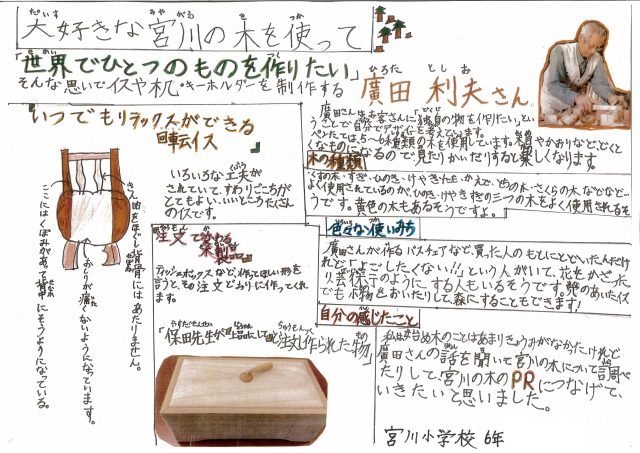 大好きな宮川の木を使って
「世界でひとつのものを作りたい」
そんな思いでイスや机・キーホルダーを制作する
廣田 利夫さん。
ひろた としお
いつでもリラックスができる
回転イス
いろいろな工夫が
されていて、すわりごこちが
とてもよい、いいところだくさん
のイスです。
きん肉をほぐし、背骨にはあたりません。
おしりが痛くないようになっています。
ここにはくぼみがあって背中にそうようになっている。
注文で変わる
木製品
ティッシュボックスなど、作ってほしい形を
言うと、その注文どおりに作ってくれ
ます。
「保田先生が
注文し作られた物」
廣田さんはお客さんに「独自の物を作りたい」とい
うことで自分でデザインを考えています。
くなものになるので見たりかいだりすると楽しくなります。
木の種類
くすの木・すぎ・ひのき・けやき
よく使用されているのが、ひのき・けやき・すぎの三つの木をよく使用されるそ
うです。黄色の木もあるそうですよ。
色々な使いみち
廣田さんが作るバスチェアなど、買った人のもとにとどいたんだけ
れど「下ごしたくない!!」という人がいて、花をかざった
でも植物をおいたりして、森にすることもできます!
自分の感じたこと
私は木のことはあまりきょうみがなかったけれど
廣田さんの話を聞いて宮川の木について調べ
たりして、宮川の木のPRにつなげて、
いきたいと思いました。
宮川小学校 6年